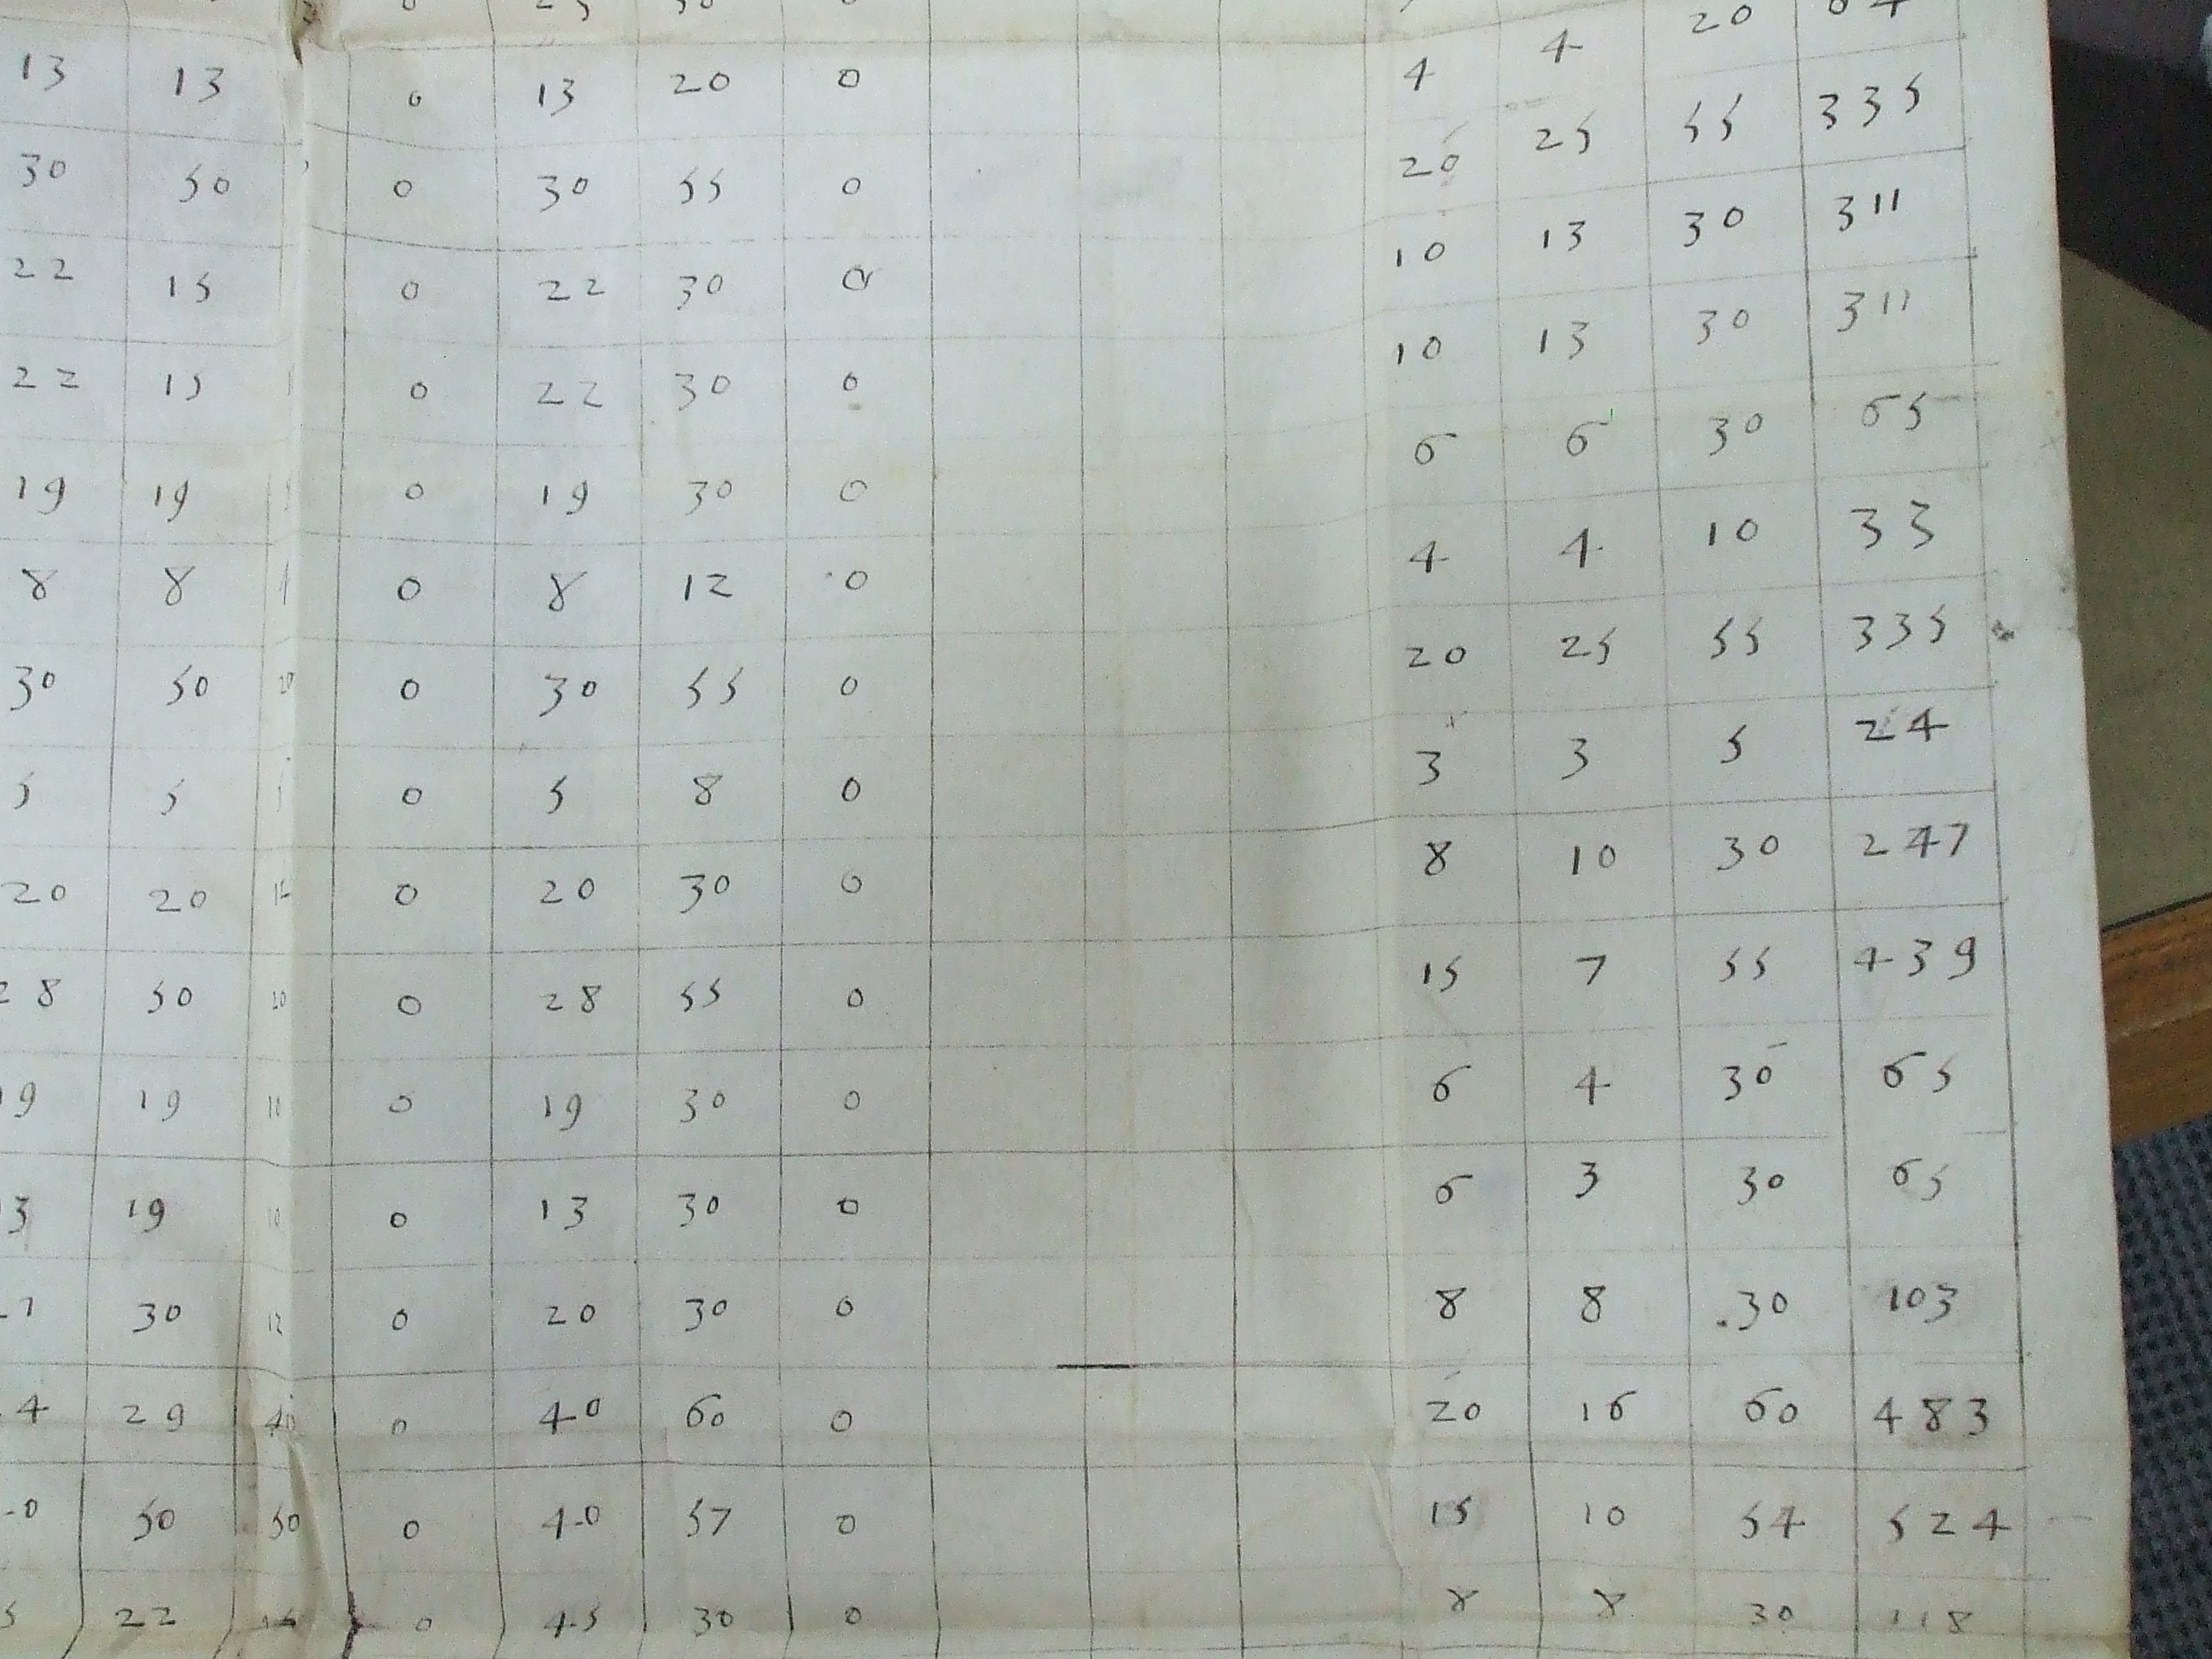 13 13 0 13 20 0 4 4 20
30 50 0 30 55 0 20 25 55 335
22 15 0 22 30 0 10 13 30 311
22 15 0 22 30 0 10 13 30 311
19 19 0 19 30 0 6 6 30 65
8 8 0 8 12 0 4 4 10 33
30 50 20 0 30 55 0 20 25 55 335
5 5 0 5 8 0 3 3 5 24
20 20 12 0 20 30 0 8 10 30 247
28 50 20 0 28 55 0 15 7 55 439
19 19 10 0 19 30 0 6 4 30 65
19 10 0 13 30 0 6 3 30 65
30 12 0 20 30 0 8 8 30 103
29 40 0 40 60 0 20 16 60 483
50 50 0 40 57 0 15 10 54 524
22 0 45 30 0 8 8 30 118